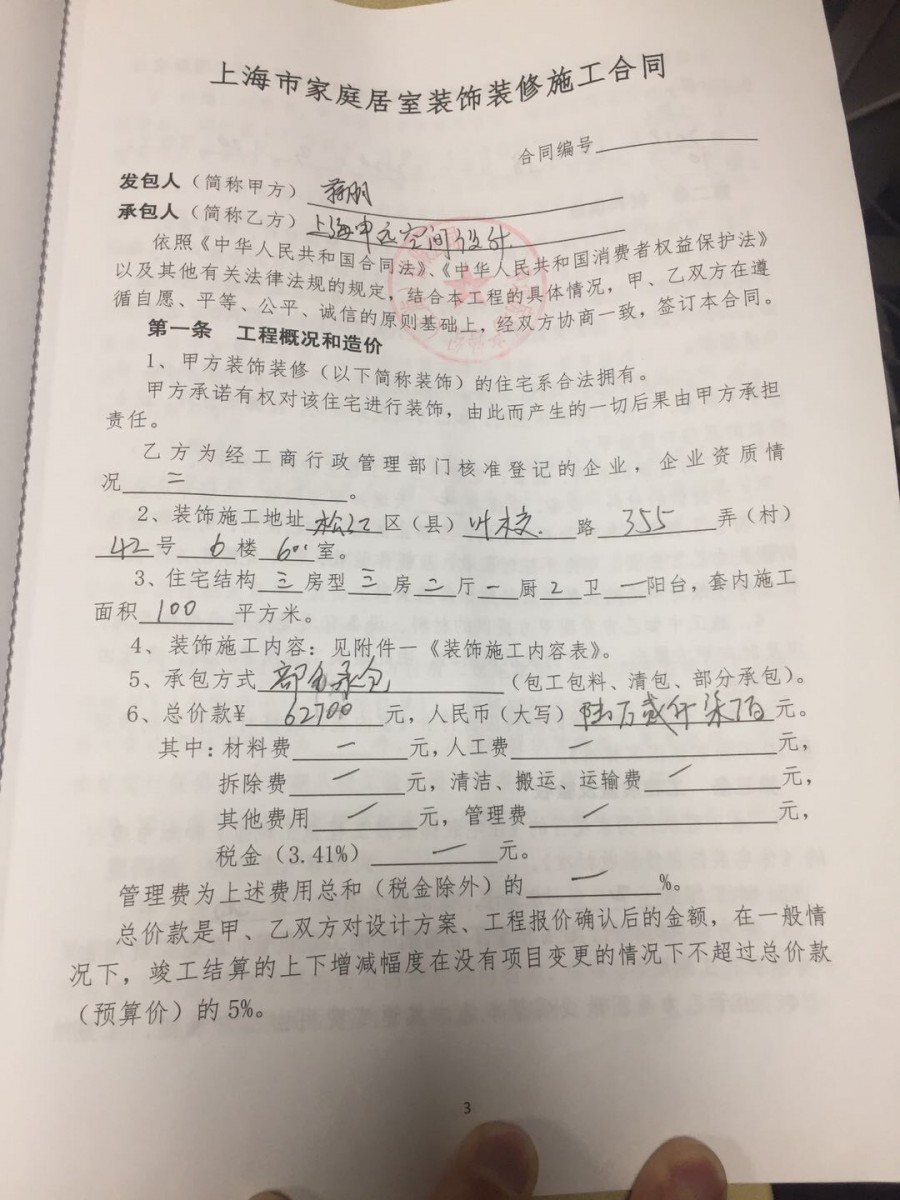 上海市家庭居室装饰装修施工合同
合同编号
发包人（简称甲方） 蒋朋
承包人（简称乙方） 上海申远空间设计
依照《中华人民共和国合同法》、《中华人民共和国消费者权益保护法》
以及其他有关法律法规的规定，结合本工程的具体情况，甲、乙双方在遵
循自愿、平等、公平、诚信的原则基础上，经双方协商一致，签订本合同。
第一条 工程概况和造价
1、甲方装饰装修（以下简称装饰）的住宅系合法拥有。
甲方承诺有权对该住宅进行装饰，由此而产生的一切后果由甲方承担
责任。
乙方为经工商行政管理部门核准登记的企业，企业资质情
况 二 。
2、装饰施工地址 松江 区（县） 路 355 弄（村）
42 号 6 楼 601 室。
3、住宅结构 三 房型 三 房 二 厅 一 厨 2 卫 一 阳台，套内施工
面积 100 平方米。
4、装饰施工内容：见附件一《装饰施工内容表》。
5、承包方式 部分承包 （包工包料、清包、部分承包）。
6、总价款¥ 62700 元，人民币（大写） 陆万贰仟柒佰 元。
其中：材料费 一 元，人工费 一 元，
拆除费 一 元，清洁、搬运、运输费 一 元，
其他费用 一 元，管理费 一 元，
税金（3.41%） 一 元。
管理费为上述费用总和（税金除外）的 一 %。
总价款是甲、乙双方对设计方案、工程报价确认后的金额，在一般情
况下，竣工结算的上下增减幅度在没有项目变更的情况下不超过总价款
（预算价）的 5%。
3